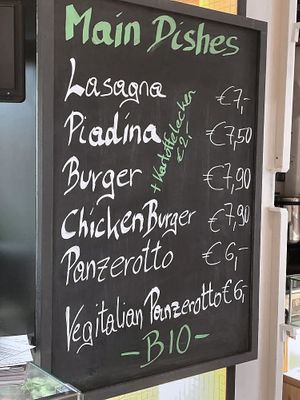 Main Dishes
Lasagna €7,-
Piadina €7,50
Burger €7,90
+Kartoffelecken
€2,-
ChickenBurger €7,90
Panzerotto €6,-
Vegitalian Panzerotto €6,-
-BIO-